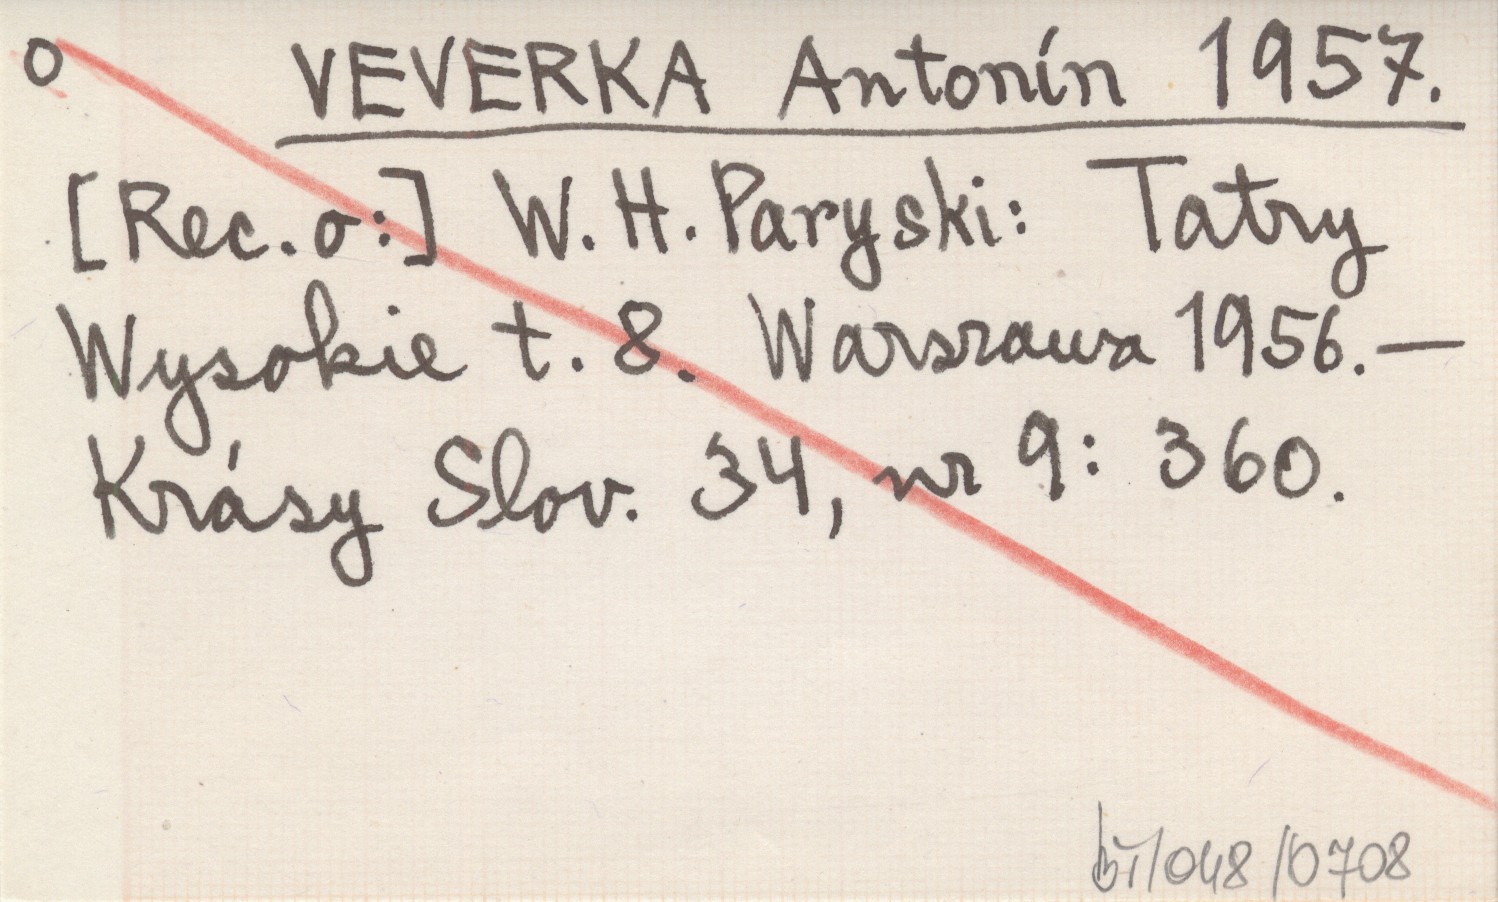 o VEVERKA Antonín 1957.
[Rec. o:] W. H. Paryski: Tatry
Wysokie t. 8. Warszawa 1956. —
Krásy Slov. 34, nr 9: 360.
/048/0708